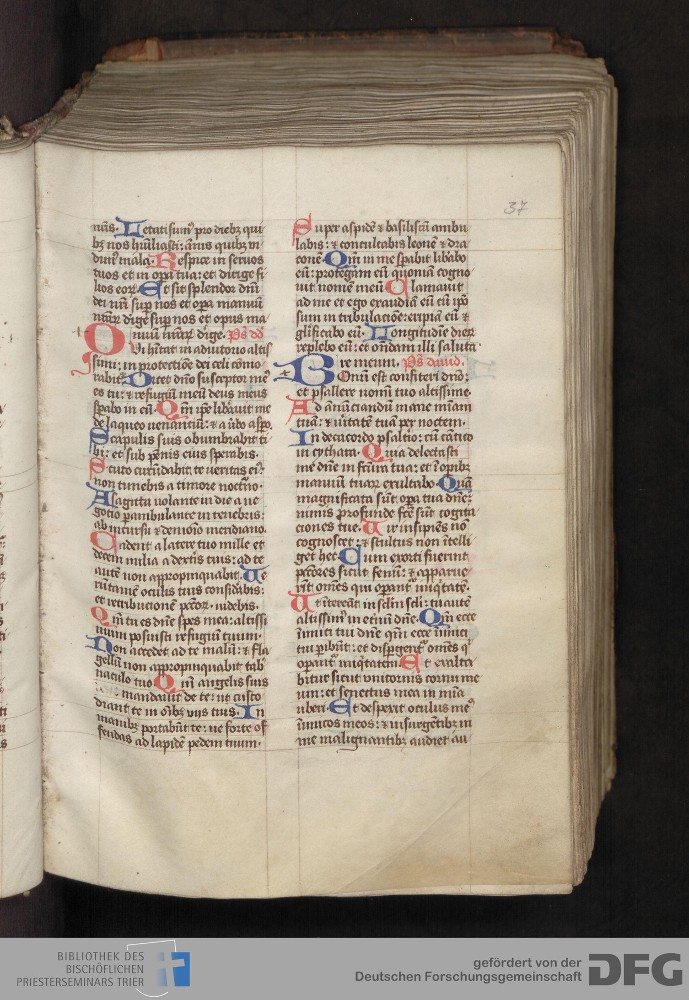 37
nr̄is. Letati sumꝰ pro diebꝫ qui
bꝫ nos hūiliasti: annis quibꝫ vi
dimꝰ mala. Respice in seruos
tuos et in oꝑa tua: et dirige fi
lios eoꝝ. Et sit splendor dn̄i
dei nr̄i suꝑ nos et oꝑa manuū
nr̄aꝝ dirige suꝑ nos et opus ma
nuū nr̄aꝝ dirige. Ps̄ dd̄
Qui hītat in adiutorio altis
simi: in protectiōe dei celi cōmo
rabit᷑. Dicet dn̄o susceptor meꝰ
es tu: et refugiū meū deus meꝰ
sꝑabo in eū. Qm̄ ip̄e libāuit me
de laqueo venantiū: et a ūbo asꝑo.
Scapulis suis obumbrabit ti
bi: et sub pēnis eius sperabis.
Scuto circūdabit te veritas eiꝰ:
non timebis a timore nocťno.
A sagitta volante in die a ne
gotio ꝑambulante in tenebris:
ab incursu et demonio meridiano.
Cadent a latere tuo mille et
decem milia a dextris tuis: ad te
autē non appropinquabit. Ve
rūtamē oculis tuis considabis:
et retribucionē pctōꝝ videbis.
Qm̄ tu es dn̄e spes mea: altissi
mum posuisti refugiū tuum.
Non accedet ad te malū: et fla
gellū non appropinquabit tab̾
naculo tuo. Qm̄ angelis suis
mandauit de te: ut custo
diant te in oībꝫ viis tuis. In
manibꝫ portabūt te: ne forte of
fendas ad lapidē pedem tuum.
Super aspidē et basiliscū ambu
labis: et conculcabis leonē et dra
conē. Qm̄ in me sꝑabit libābo
eū: protegam eū quoniā cogno
uit nomē meū. Clamauit
ad me et ego exaudiā eū cū ip̄o
sum in tribulacioē: eripiā eū et
glificabo eū. Longitudīe dieꝝ
replebo eū: et oñdam illi saluta
re meum. Ps̄ dauid.
Bonū est confiteri dn̄o:
et psallere nomī tuo altissime.
Ad annūciandū mane mīam
tuā: et ūitatē tuā per noctem.
In decacordo psaltio: cū cātico
in cythara. Quia delectasti
me dn̄e in fcūra tua: et ī oꝑibꝫ
manuū tuaꝝ exultabo. Quā
magnificata sūt oꝑa tua dn̄e:
nimis profunde fcē sūt cogita
ciones tue. Vir insipiēs nō
cognoscet: et stultus non ītelli
get hec. Cum exorti fuerint
pctōres sicut fenū: et apparue
rīt om̄es qui oꝑant᷑ iniq̄tatē.
Vt ītereāt in sclm̄ scli: tu autē
altissimꝰ in etnū dn̄e. Qm̄ ecce
inimici tui dn̄e qm̄ ecce inimici
tui ꝑibūt: et disꝑgent᷑ om̄es q̇
oꝑant᷑ iniq̄tatem. Et exalta
bitur sicut unicornis cornu me
um: et senectus mea in mīa
uberi. Et despexit oculus meꝰ
inimicos meos: et in isurgētibꝫ in
me malignantibꝫ audiet au
BIBLIOTHEK DES
BISCHÖFLICHEN
PRIESTERSEMINARS TRIER
gefördert von der
Deutschen Forschungsgemeinschaft
DFG